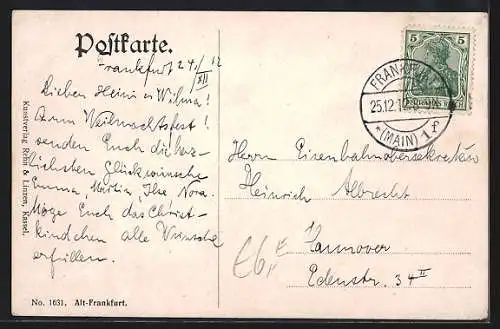 Postkarte.
Frankfurt 24./XII 12
Lieben Heini u Wilma!
Zum Weihnachtsfest!
senden Euch die herz-
lichsten Glückwünsche
Emma, Martin, Ilse Nora.
Möge Euch das Christ-
kindchen alle Wünsche
erfüllen.
Kunstverlag Rehn & Linzen, Kassel.
No. 1631. Alt-Frankfurt.
5 5
FRANKFURT
25.12.12
*(MAIN) 1
Herrn Eisenbahnobersekretär
Heinrich Albrecht
Hannover
Edenstr. 34 II